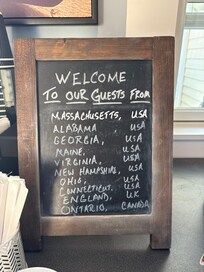 WELCOME
TO OUR GUESTS FROM
MASSACHUSETTS, USA
ALABAMA USA
GEORGIA, USA
MAINE, USA
VIRGINIA, USA
NEW HAMPSHIRE, USA
OHIO, USA
CONNECTICUT, USA
ENGLAND, UK
ONTARIO, CANADA